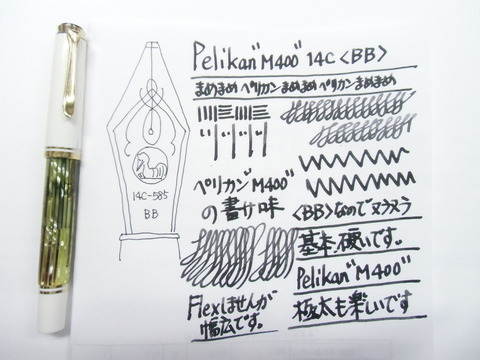 Pelikan "M400" 14C <BB>
まめまめ ペリカン まめまめ ペリカン まめまめ
14C-585
BB
ペリカン"M400"
の書サ味
<BB>なのでヌラヌラ
基本、硬いです。
Pelikan "M400"
極太も楽しいです
Flexしませんが
幅広です。